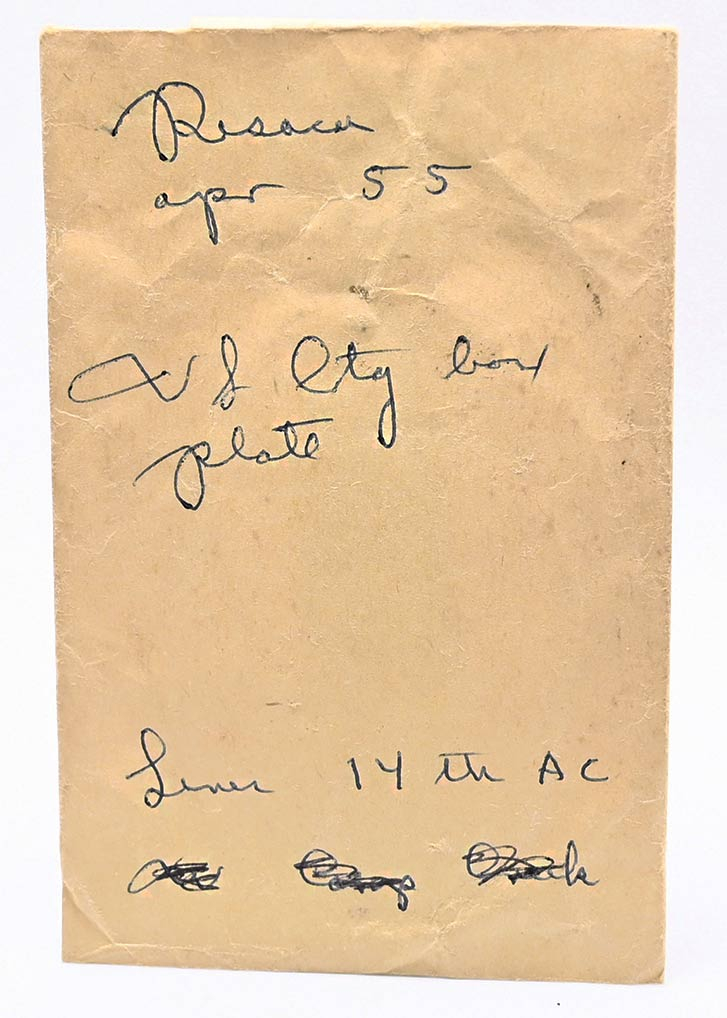 Resaca
apr 55
US Ctg box
plate
Lines 14 th AC